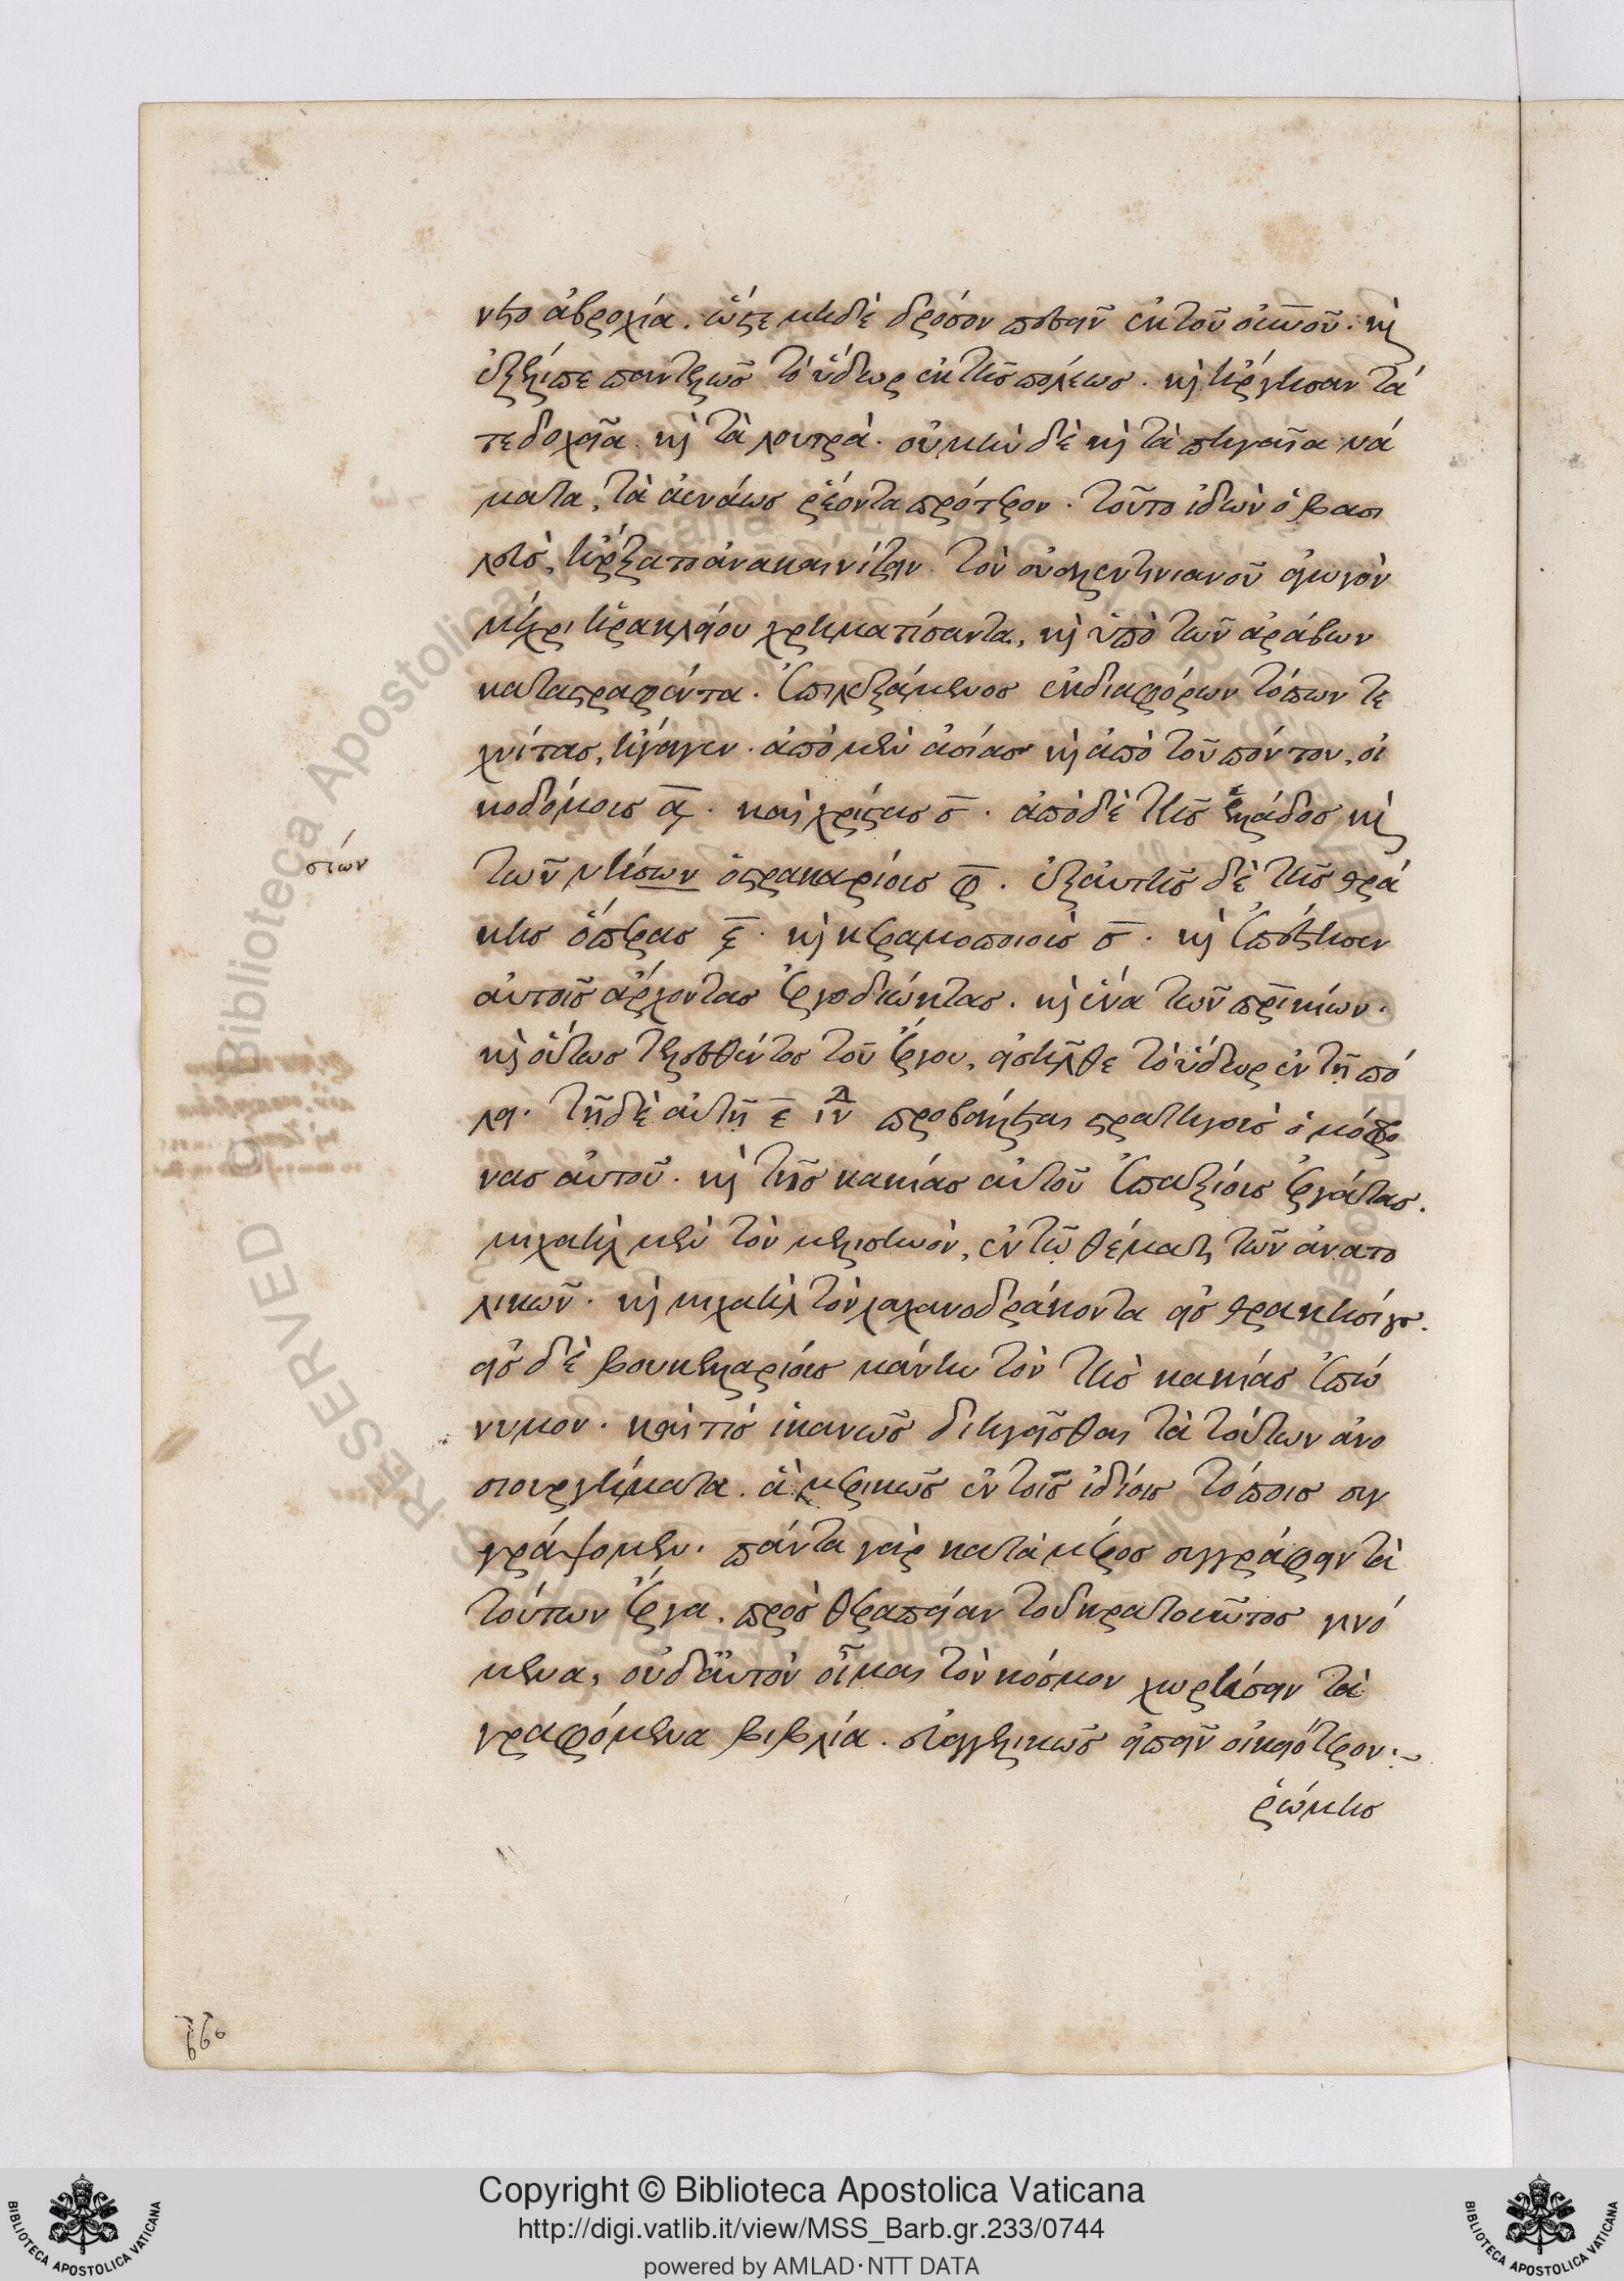 νετο ἀβροχία. ὥστε μηδὲ δρόσον πεσεῖν ἐκ τοῦ οὐνοῦ. κὶ
ἐξέλιπε παντελῶς τὸ ὕδωρ ἐκ τῆς πόλεως. κὶ ἤργησαν τά
τε δοχεῖα κὶ τὰ λουτρά. οὐ μὴν δὲ κὶ τὰ πηγαῖα νά
ματα, τὰ ἀεννάως ῥέοντα πρότερον. τοῦτο ἰδὼν ὁ βασι
λεὺς, ἤρξατο ἀνακαινίζειν τὸν οὐαλεντινιανοῦ ἀγωγὸν
μέχρι ἡρακλείου χρηματίσαντα, κὶ ὑπὸ τῶν ἀράβων
καταστραφέντα. ἐπιλεξάμενος ἐκ διαφόρων τόπων τε
χνίτας, ἤγαγεν. ἀπὸ μὲν ἀσίας κὶ ἀπὸ τοῦ πόντου, οἰ
κοδόμους ͵α. καὶ χρίστας σ. ἀπὸ δὲ τῆς ἑλλάδος κὶ
τῶν νήσων ὀστρακαρίους φ. ἐξ αὐτῆς δὲ τῆς θρά
σίων
κης ὀπέρας ͵ε. κὶ κεραμοποιοὺς σ. κὶ ἐπέστησεν
αὐτοῖς ἄρχοντας ἐργοδιώκτας. κὶ ἕνα τῶν πρικίων.
κὶ οὕτως τελεσθέντος τοῦ ἔργου, εἰσῆλθε τὸ ὕδωρ ἐν τῇ πό
λει. τῇ δὲ αὐτῇ ε ἰνδ προβάλλεται στρατηγοὺς ὁμόφρο
νας αὐτοῦ. κὶ τῆς κακίας αὐτοῦ ἐπαξίους ἐργάτας.
μιχαὴλ μὲν τὸν μελισσηνὸν, ἐν τῷ θέματι τῶν ἀνατο
λικῶν. κὶ μιχαὴλ τὸν λαχανοδράκοντα εἰς θρακησίους.
εἰς δὲ βουκελλαρίους μάνην τὸν τῆς κακίας ἐπώ
νυμον. καὶ τίς ἱκανῶς διηγεῖσθαι τὰ τούτων ἀνο
σιουργήματα. ἃ μερικῶς ἐν τοῖς ἰδίοις τόποις συγ
γράψομεν. πάντα γὰρ κατὰ μέρος συγγράφειν τὰ
τούτων ἔργα. πρὸς θεραπείαν τοῦ κρατοῦντος γινό
μενα, οὐδ' αὐτὸν οἶμαι τὸν κόσμον χωρῆσειν τὰ
γραφόμενα βιβλία. εὐαγγελικῶς εἰπεῖν οἰκειότερον :~
ῥώμης